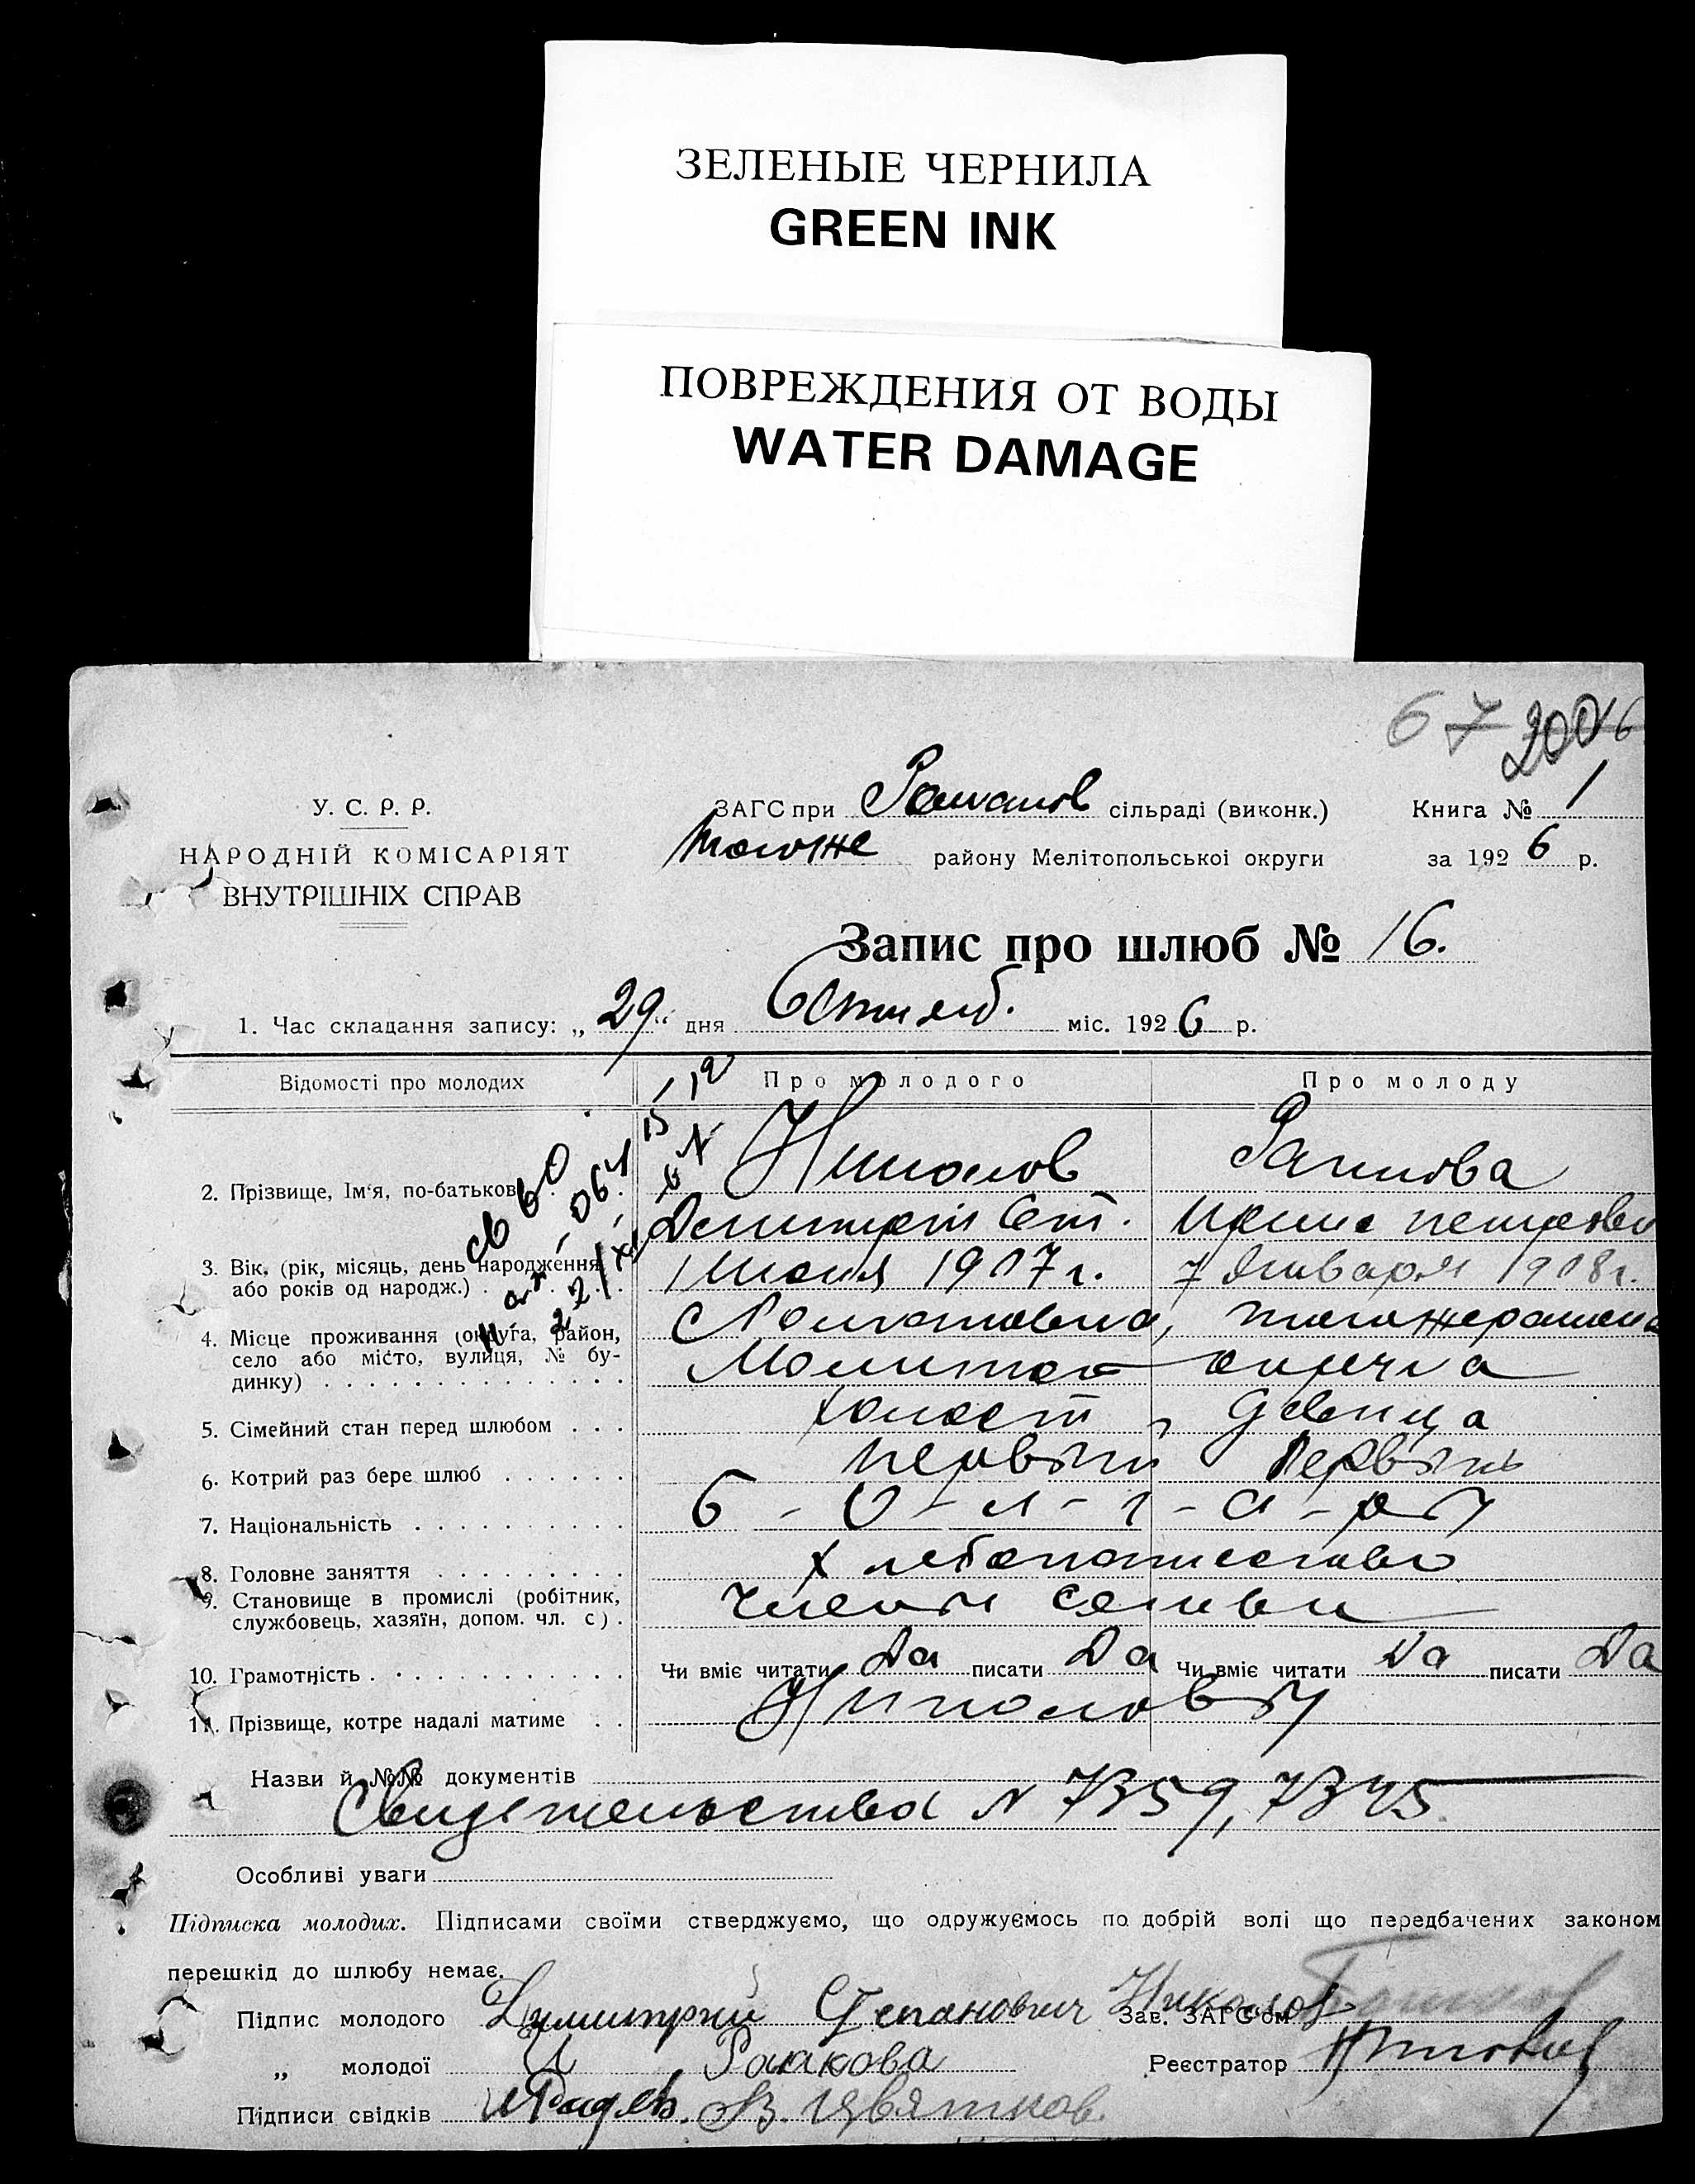 ЗЕЛЕНЫЕ ЧЕРНИЛА
GREEN INK
ПОВРЕЖДЕНИЯ ОТ ВОДЫ
WATER DAMAGE
67
У. С. Р. Р.
НАРОДНІЙ КОМІСАРІЯТ
ВНУТРІШНІХ СПРАВ
ЗАГС при сільраді (виконк.) Книга № 1
району Мелітопольської округи за 1926 р.
Запис про шлюб № 16.
1. Час складання запису: „29“ дня міс. 1926 р.
Відомості про молодих Про молодого Про молоду
2. Прізвище, Ім'я, по-батькові Николов
Дмитрий Ст.
3. Вік. (рік, місяць, день народження
або років од народж.) 1 1907 г. 7 Января 1908 г.
4. Місце проживання (округа, район,
село або місто, вулиця, № бу-
динку) округа
5. Сімейний стан перед шлюбом холост девица
6. Котрий раз бере шлюб первый Первый
7. Національність б-о-л-г-а-ры
8. Головне заняття хлебопашество
9. Становище в промислі (робітник,
службовець, хазяїн, допом. чл. с) члены семьи
10. Грамотність Чи вміє читати Да писати Да Чи вміє читати Да писати Да
11. Прізвище, котре надалі матиме Николовы
Назви й №№ документів
Свидетельства N 7359, 7345
Особливі уваги
Підписка молодих. Підписами своїми стверджуємо, що одружуємось по добрій волі що передбачених законом
перешкід до шлюбу немає.
Підпис молодого Димитрий Степанович Николов Зав. ЗАГС'ом
„ молодої И Раакова Реєстратор
Підписи свідків В. Цвятков.